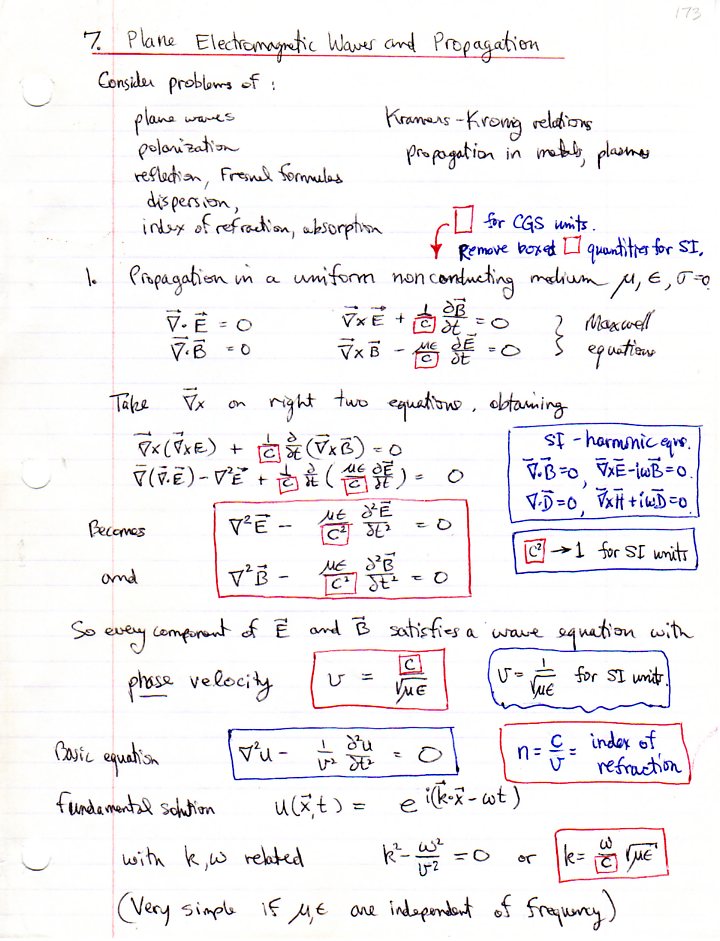 173
7. Plane Electromagnetic Waves and Propagation
Consider problems of :
plane waves
polarization
reflection, Fresnel formulas
dispersion,
index of refraction, absorption
Kramers-Kronig relations
propagation in metals, plasmas
□ for CGS units.
Remove boxed □ quantities for SI.
1. Propagation in a uniform nonconducting medium μ, ε, σ=0
∇⃗·E⃗ = 0   ∇⃗×E⃗ + 1/c ∂B⃗/∂t = 0 } Maxwell
∇⃗·B⃗ = 0   ∇⃗×B⃗ − με/c ∂E⃗/∂t = 0 } equations
Take ∇⃗× on right two equations, obtaining
∇⃗×(∇⃗×E) + 1/c ∂/∂t (∇⃗×B⃗) = 0
∇⃗(∇⃗·E⃗) − ∇²E⃗ + 1/c ∂/∂t ( με/c ∂E⃗/∂t ) = 0
SI - harmonic eqns.
∇⃗·B⃗=0, ∇⃗×E⃗−iωB⃗=0.
∇⃗·D⃗=0, ∇⃗×H⃗+iωD⃗=0.
Becomes ∇²E⃗ − με/c² ∂²E⃗/∂t² = 0
c² → 1 for SI units
and ∇²B⃗ − με/c² ∂²B⃗/∂t² = 0
So every component of E⃗ and B⃗ satisfies a wave equation with
phase velocity v = c/√με   v = 1/√με for SI units.
Basic equation ∇²u − 1/v² ∂²u/∂t² = 0   n = c/v = index of refraction
fundamental solution u(x⃗,t) = e^i(k⃗·x⃗ − ωt)
with k, ω related k² − ω²/v² = 0 or k = ω/c √με
(Very simple if μ,ε are independent of frequency)